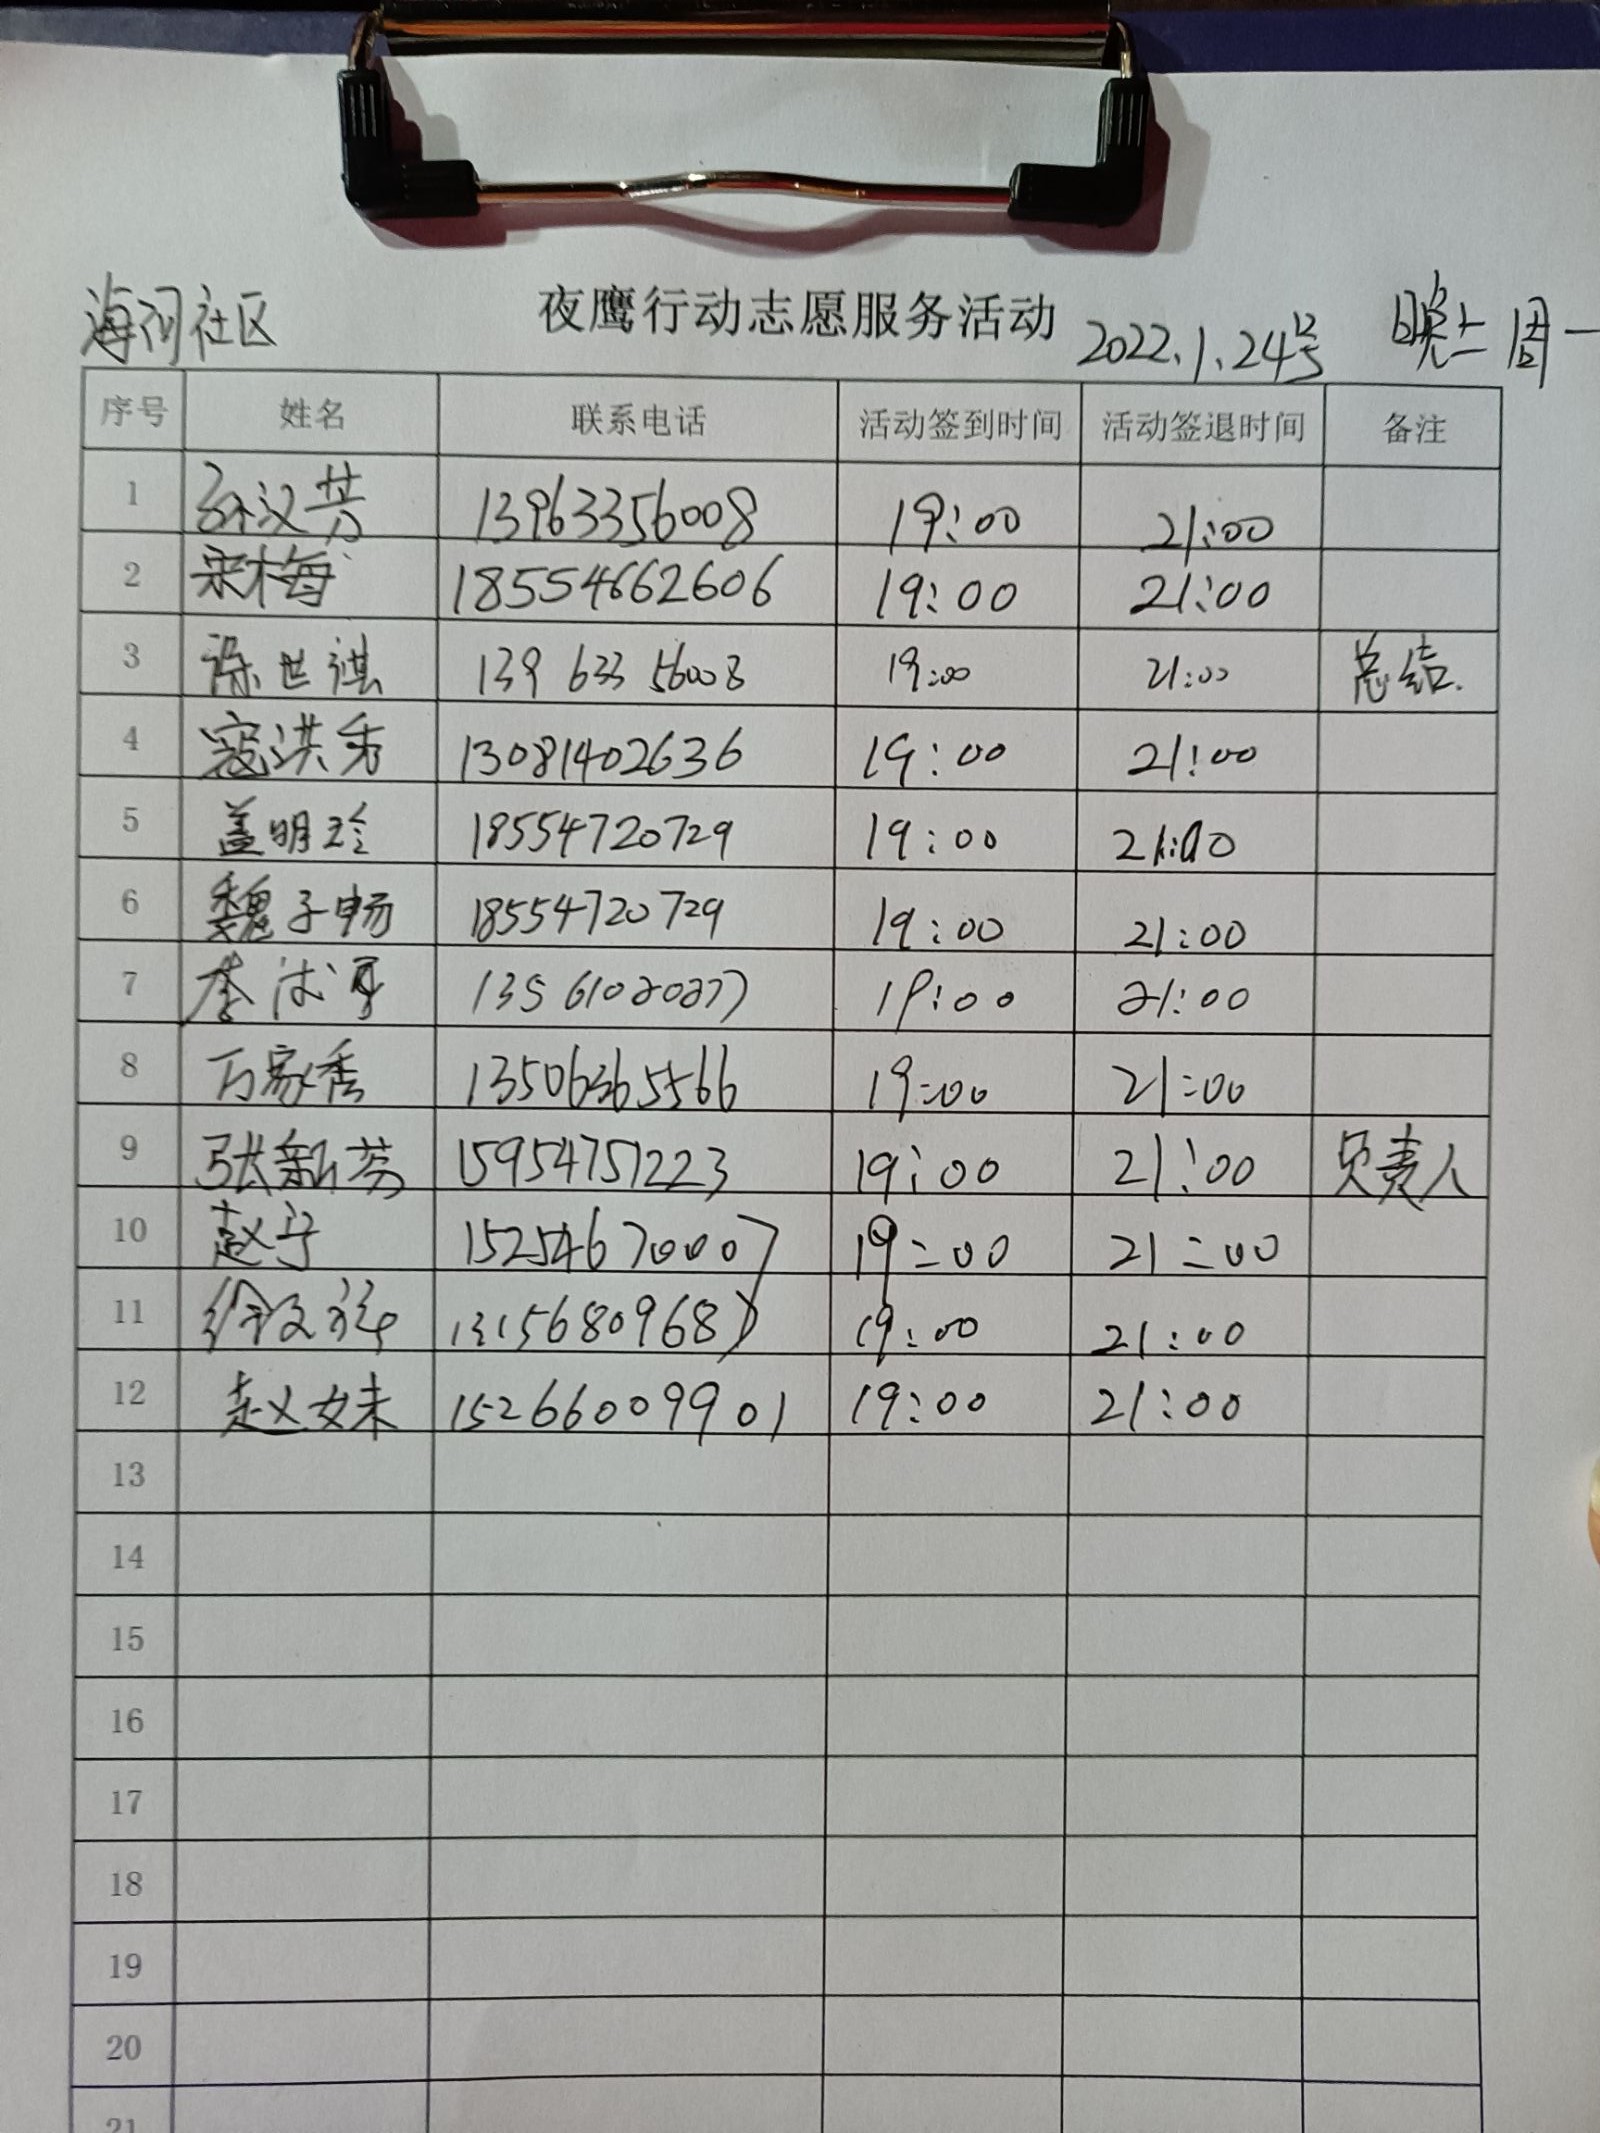 海河社区
夜鹰行动志愿服务活动
2022.1.24号 晚上 周一
序号 姓名 联系电话 活动签到时间 活动签退时间 备注
1 孙汉芳 13963356008 19:00 21:00
2 宋梅 18554662606 19:00 21:00
3 徐世祺 13963356008 19:00 21:00 总结.
4 寇洪秀 13081402636 19:00 21:00
5 盖明玲 18554720729 19:00 21:00
6 魏子畅 18554720729 19:00 21:00
7 李 13561020277 19:00 21:00
8 万家秀 13506365566 19:00 21:00
9 张新芳 15954751223 19:00 21:00 负责人
10 赵宁 15254670007 19:00 21:00
11 徐 19:00 21:00
12 赵妹 15266009901 19:00 21:00
13
14
15
16
17
18
19
20
21